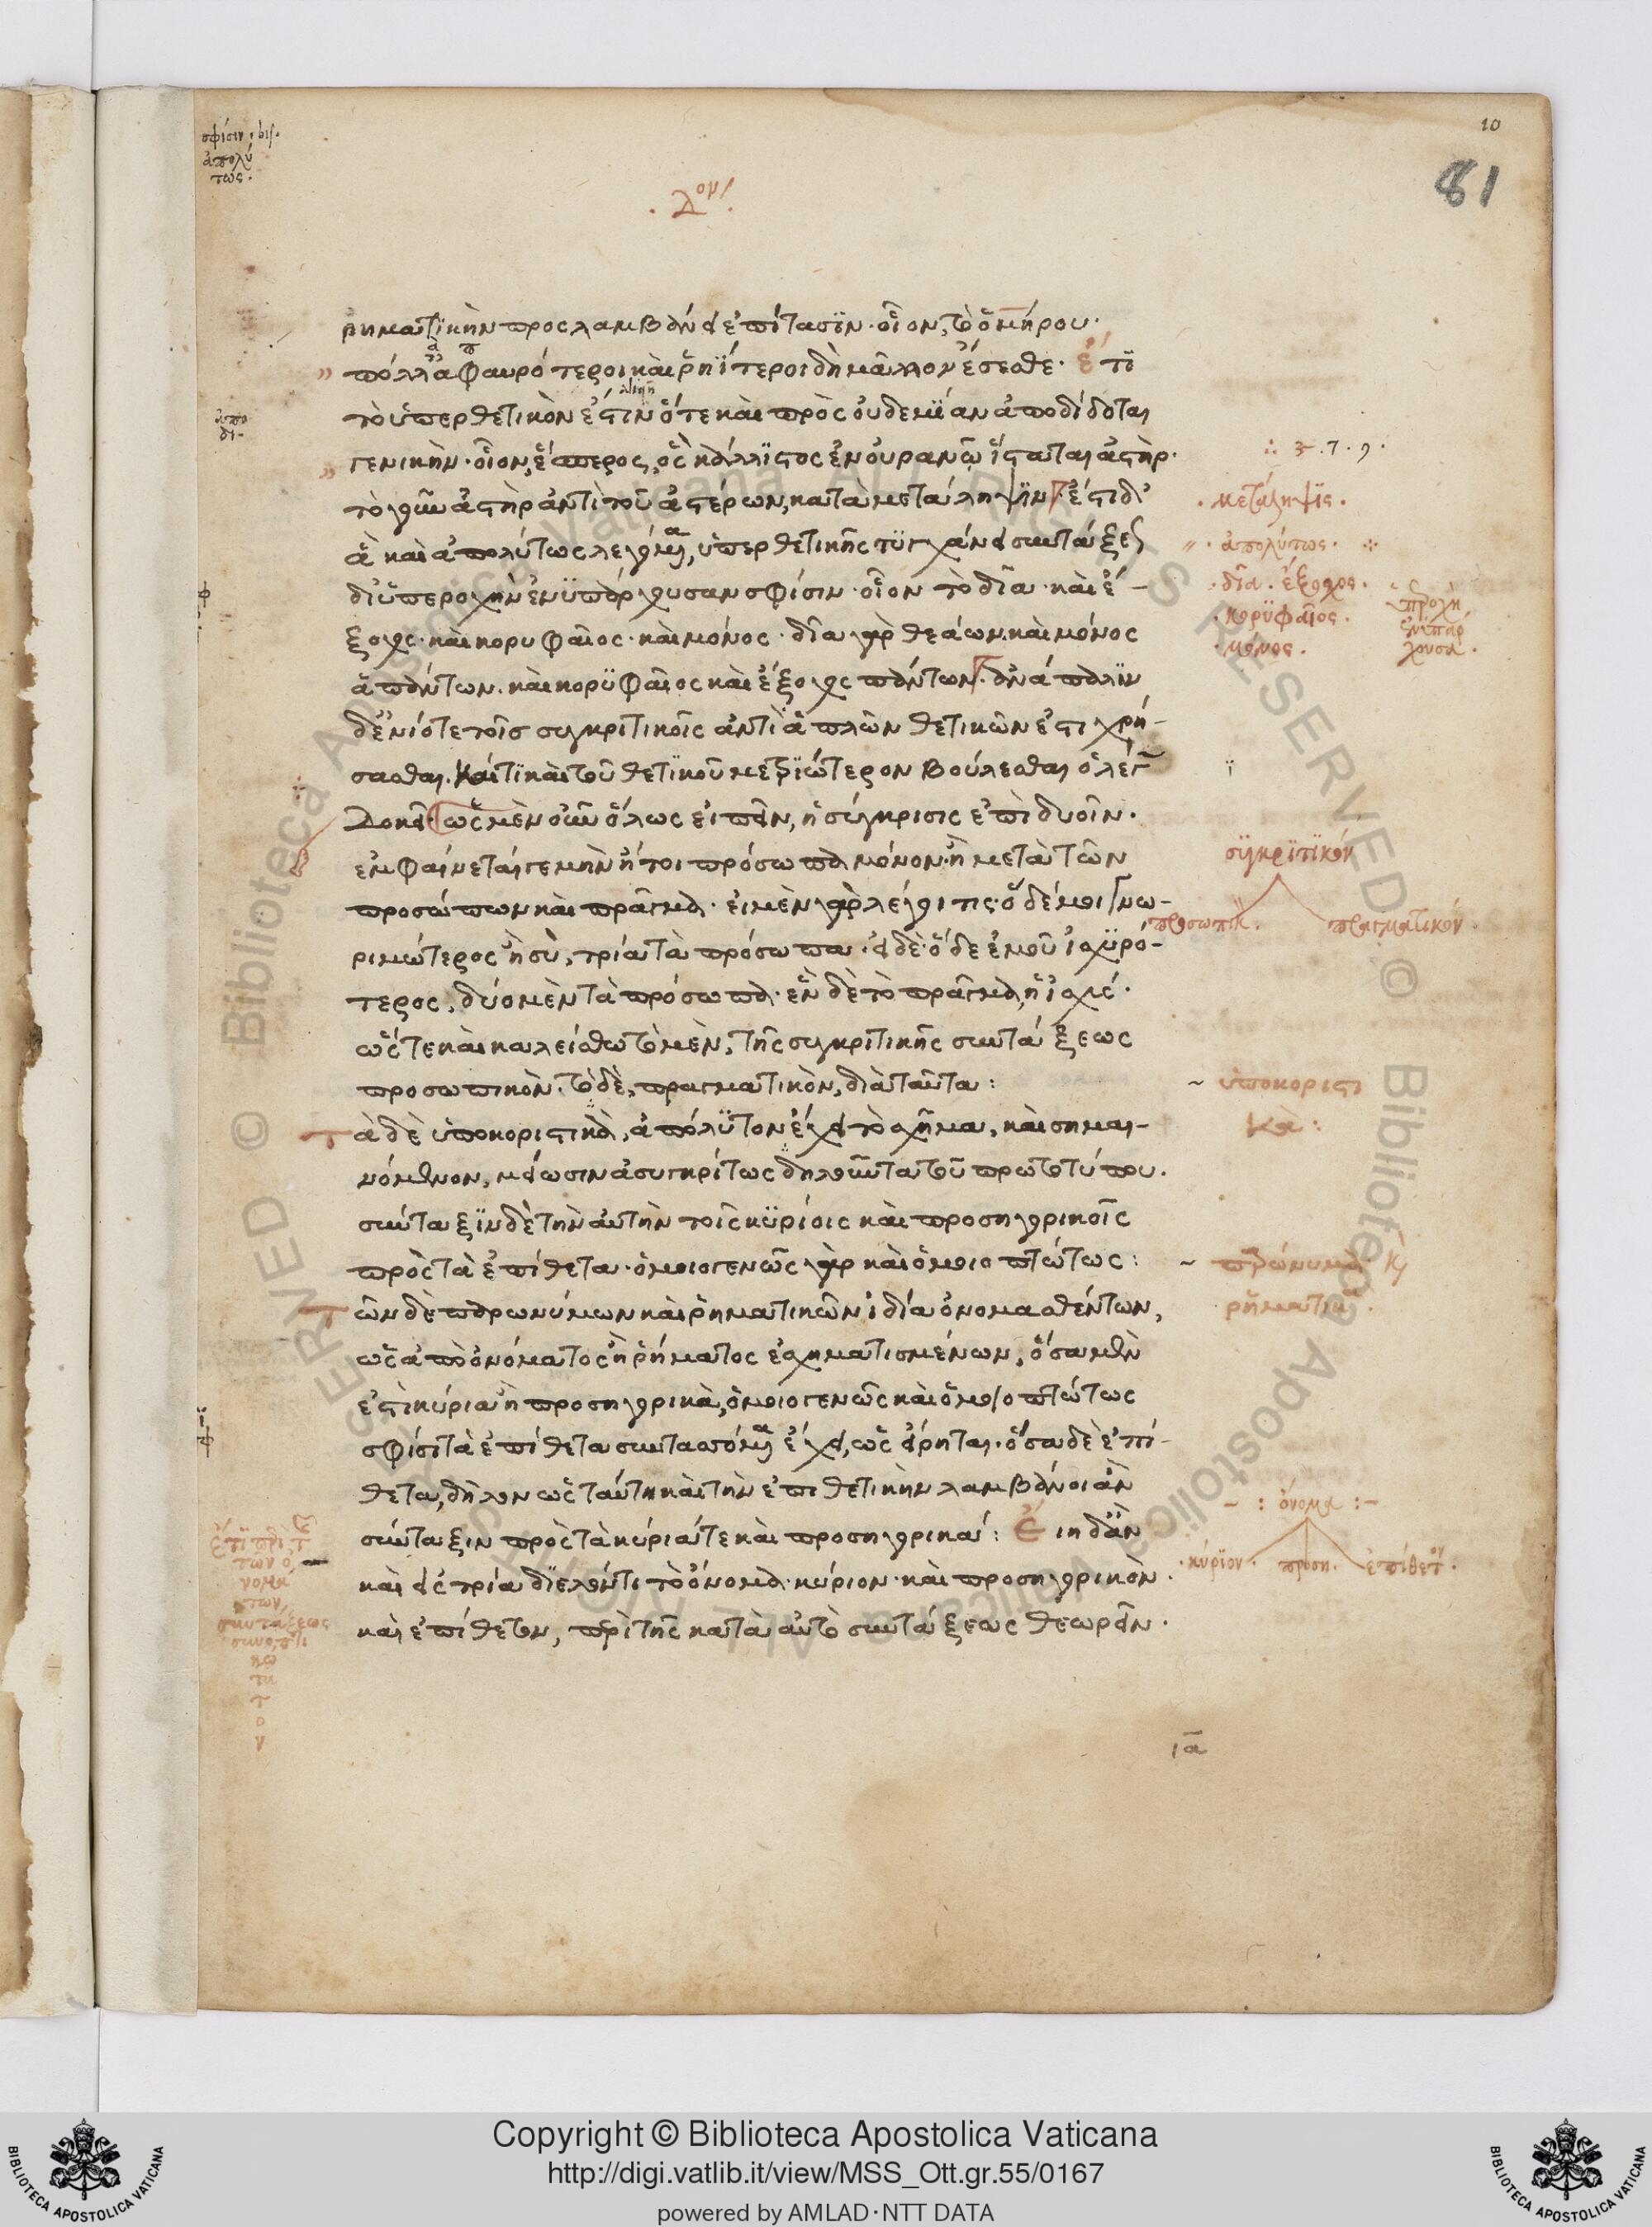 10
81
σφίσιν, bis.
ἀπολύ
τως.
ῥηματικὴν προσλαμβάνει ἐπίτασιν· οἷον, τὸ ὁμήρου·
πολλα φαυρότεροι καὶ ῥηίτεροι δὴ μᾶλλον ἔσεσθε· ἔτι
τὸ ὑπερθετικὸν ἐστιν ὅτε καὶ πρὸς οὐδεμίαν ἀποδίδοται
γενικήν· οἷον, ἕσπερος, ὃς κάλλιστος ἐν οὐρανῷ ἵσταται ἀστήρ·
τὸ γοῦν ἀστὴρ ἀντὶ τοῦ ἀστέρων, κατὰ μετάληψιν· ἔστι δ'
ἃ καὶ ἀπολύτως λεγόμενα, ὑπερθετικῆς τυγχάνει συντάξεως
δι' ὑπεροχὴν ἐνυπάρχουσαν σφίσιν· οἷον τὸ δῖα· καὶ ἔ-
ξοχος· καὶ κορυφαῖος· καὶ μόνος· δῖα γὰρ θεάων. καὶ μόνος
ἁπάντων. καὶ κορυφαῖος καὶ ἔξοχος πάντων. ἀνάπαλιν
δ' ἐνίοτε τοῖς συγκριτικοῖς ἀντὶ ἁπλῶν θετικῶν ἐστι χρή-
σασθαι. καί τι καὶ τοῦ θετικοῦ μετριώτερον βούλεσθαι ὁ λέγων
δοκεῖ· ὡς μὲν οὖν ὅλως εἰπεῖν, ἡ σύγκρισις ἐπὶ δυοῖν·
ἐμφαίνεταί γε μὴν ἤτοι πρόσωπα μόνον· ἢ μετὰ τῶν
προσώπων καὶ πρᾶγμα· εἰ μὲν γὰρ λέγοι τις· ὅδέ μοι γνω-
ριμώτερος ἢ σύ, τρία τὰ πρόσωπα· εἰ δὲ· ὅδε ἐμοῦ ἰσχυρό-
τερος, δύο μὲν τὰ πρόσωπα· ἓν δὲ τὸ πρᾶγμα, ἡ ἰσχύς·
ὥστε καὶ καλείσθω τὸ μὲν, τῆς συγκριτικῆς συντάξεως
προσωπικὸν· τὸ δὲ, πραγματικὸν, διὰ ταῦτα:
Τὰ δὲ ὑποκοριστικὰ, ἀπόλυτον ἔχει τὸ σχῆμα, καὶ σημαι-
νόμενον, μείωσιν ἀσυγκρίτως δηλοῦντα τοῦ πρωτοτύπου.
σύνταξιν δὲ τὴν αὐτὴν τοῖς κυρίοις καὶ προσηγορικοῖς
πρὸς τὰ ἐπίθετα· ὁμοιογενῶς γὰρ καὶ ὁμοιοπτώτως:
Τῶν δὲ παρωνύμων καὶ ῥηματικῶν ἰδία ὀνομασθέντων,
ὡς ἀπὸ ὀνόματος ἢ ῥήματος ἐσχηματισμένων, ὅσα μὲν
ἐστὶ κύρια ἢ προσηγορικὰ, ὁμοιογενῶς καὶ ὁμοιοπτώτως
σφίσι τὰ ἐπίθετα συντασσόμενα ἔχει, ὡς εἴρηται· ὅσα δὲ ἐπί-
θετα, δῆλον ὡς ταύτη καὶ τὴν ἐπιθετικὴν λαμβάνοι ἂν
σύνταξιν πρὸς τὰ κύριά τε καὶ προσηγορικά: Εἴη δ' ἂν
καὶ εἰς τρία διελόντι τὸ ὄνομα· κύριον· καὶ προσηγορικὸν·
καὶ ἐπίθετον, περὶ τῆς κατὰ αὐτὸ συντάξεως θεωρεῖν·
μετάληψις.
ἀπολύτως.
δῖα. ἔξοχος.
κορυφαῖος.
μόνος.
συγκριτικόν
προσωπικ. πραγματικόν
ὑποκοριστι
κὰ:
παρώνυμα κ
ῥηματικ
: ὄνομα :
κύριον. προση. ἐπίθετον.
ια
Copyright © Biblioteca Apostolica Vaticana
http://digi.vatlib.it/view/MSS_Ott.gr.55/0167
powered by AMLAD·NTT DATA